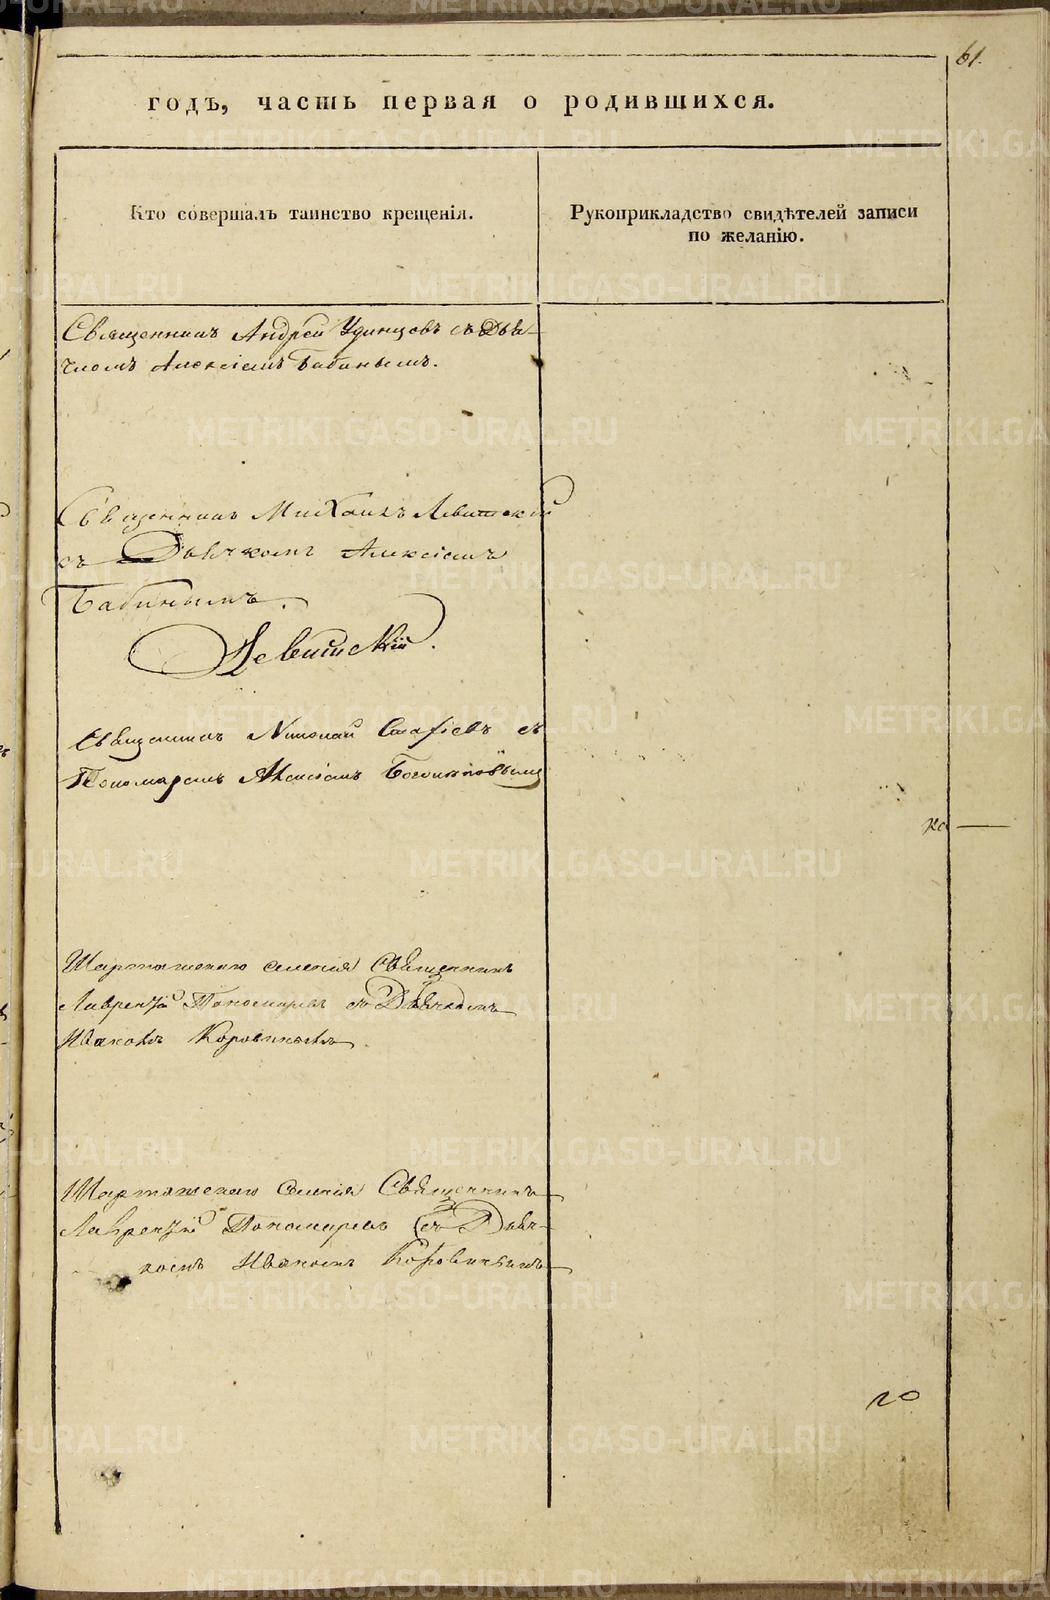 61.
годъ, часть первая о родившихся.
Кто совершалъ таинство крещенія.
Рукоприкладство свидѣтелей записи
по желанію.
Священникъ Андрей Удинцовъ съ Дья-
чкомъ Алексіемъ Бабинымъ.
Священникъ Михаилъ Левитскій
съ Дьячкомъ Алексіемъ
Бабинымъ.
Левитскій.
Священникъ Николай съ
Пономаремъ Алексіемъ
Шарташскаго селенія Священникъ
Лаврентій Пономаревъ съ Дьячкомъ
Иваномъ Коровинымъ.
Шарташскаго Селенія Священникъ
Лаврентій Пономаревъ съ Дьяч-
комъ Иваномъ Коровинымъ
го
METRIKI.GASO-URAL.RU